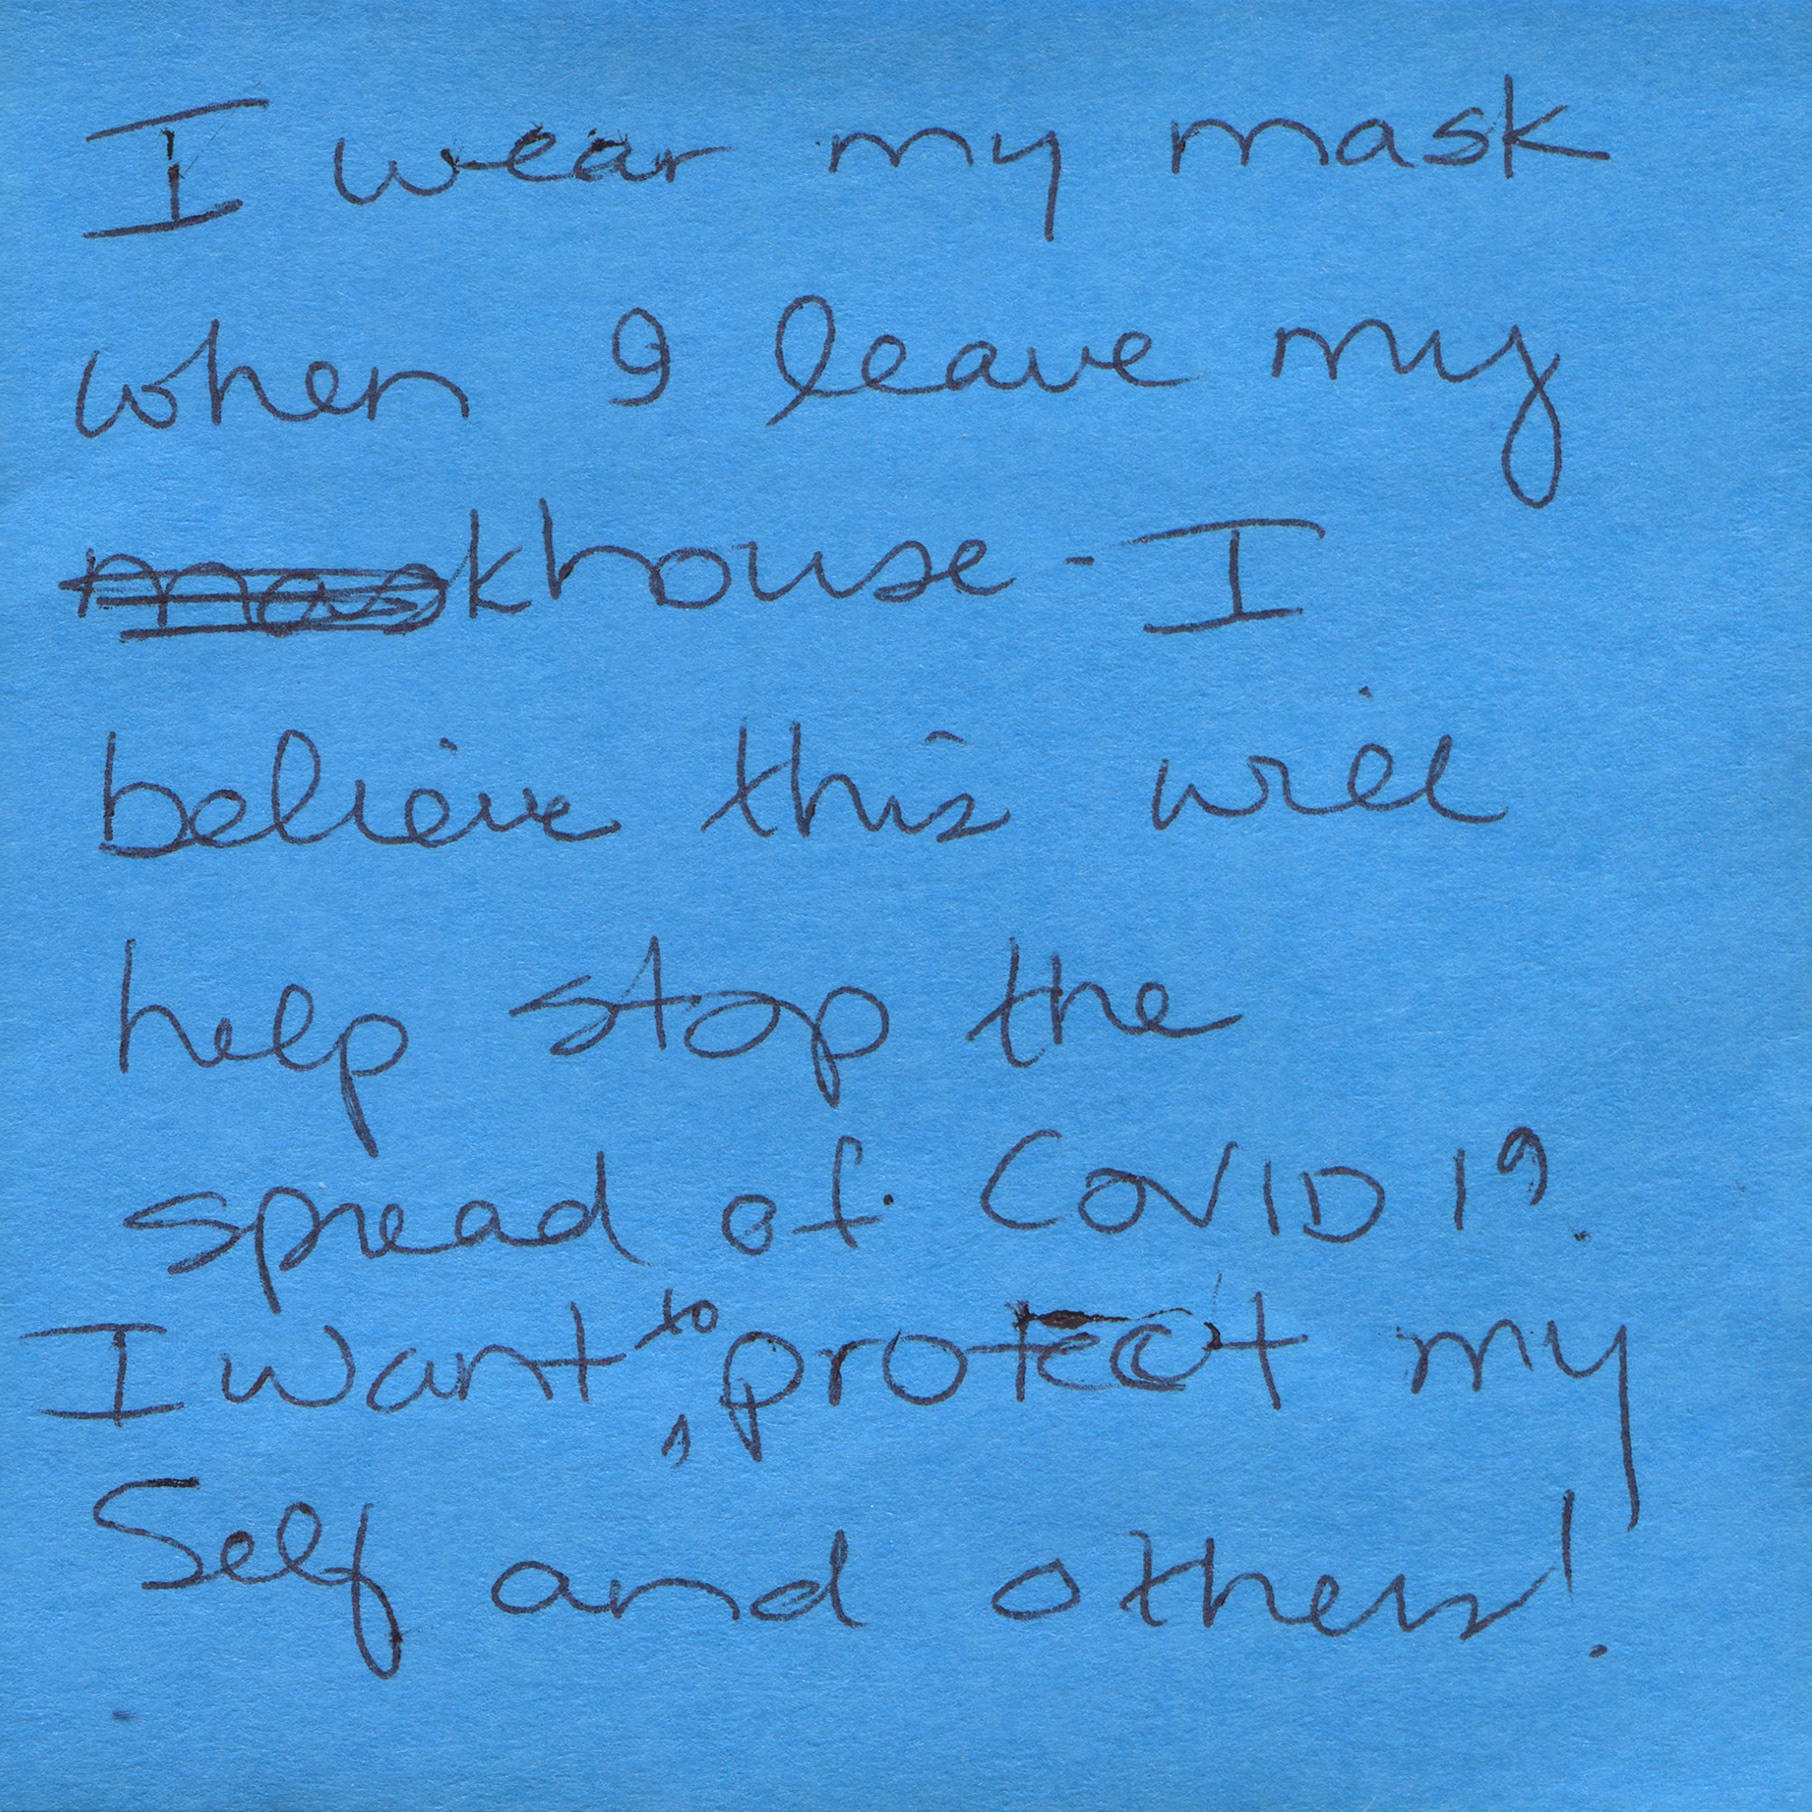 I wear my mask
when I leave my
mask house - I
believe this will
help stop the
spread of COVID 19.
I want to protect my
Self and others!